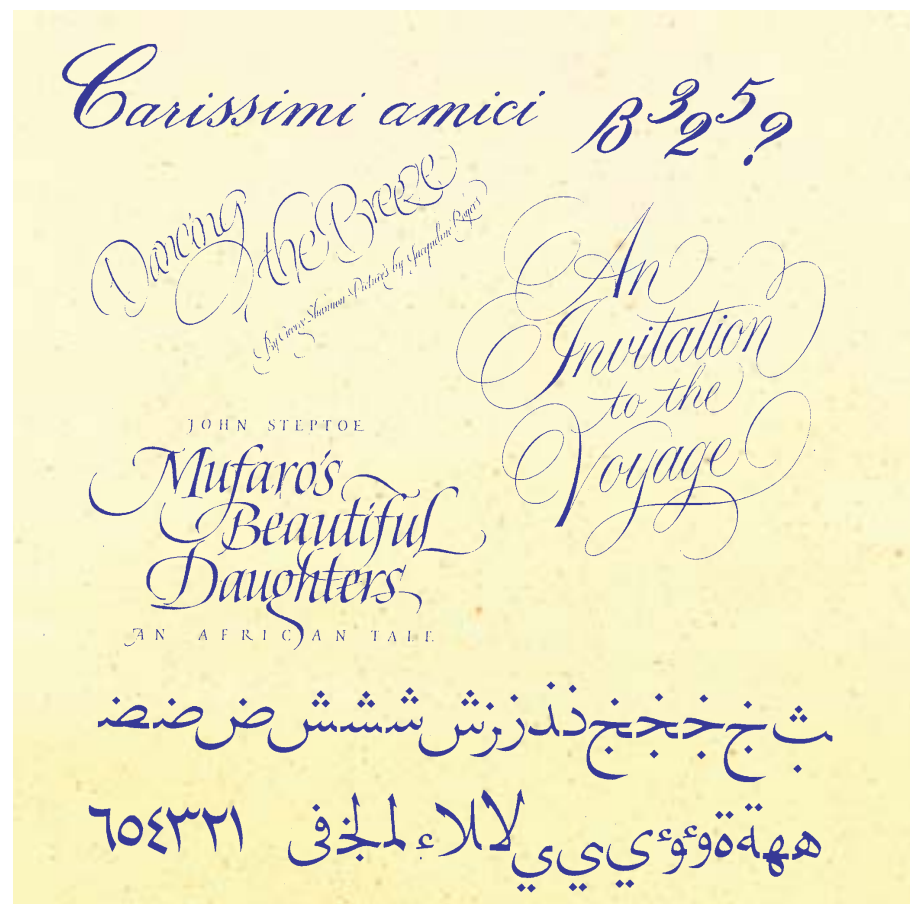 Carissimi amici
ß 3 2 5 ?
Dancing
the Breeze
By George Shannon Pictures by Jacqueline Rogers
An
Invitation
to the
Voyage
JOHN STEPTOE
Mufaro's
Beautiful
Daughters
AN AFRICAN TALE
خ خ ذ ذ ر ز ش ششش ض ضض
ههة ة ؤ ئ ي ي ي لا لا ء لمالخ في ٦٥٤٣٢١